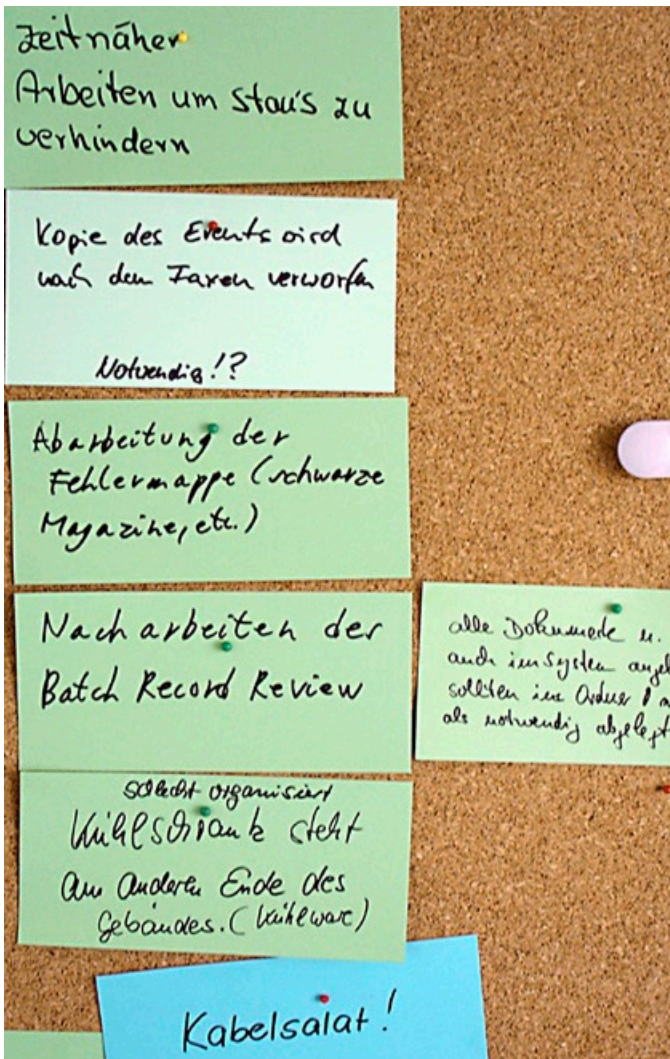 zeitnäher
Arbeiten um stau's zu
verhindern
Kopie des Events wird
nach dem Faxen verworfen
Notwendig!?
Abarbeitung der
Fehlermappe (schwarze
Magazine, etc.)
Nacharbeiten der
Batch Record Review
alle Dokumede u.
auch im System
sollten im Ordner
als notwendig abgelegt
schlecht organisiert
Kühlschrank steht
am anderen Ende des
Gebäudes. (Kühlware)
Kabelsalat!